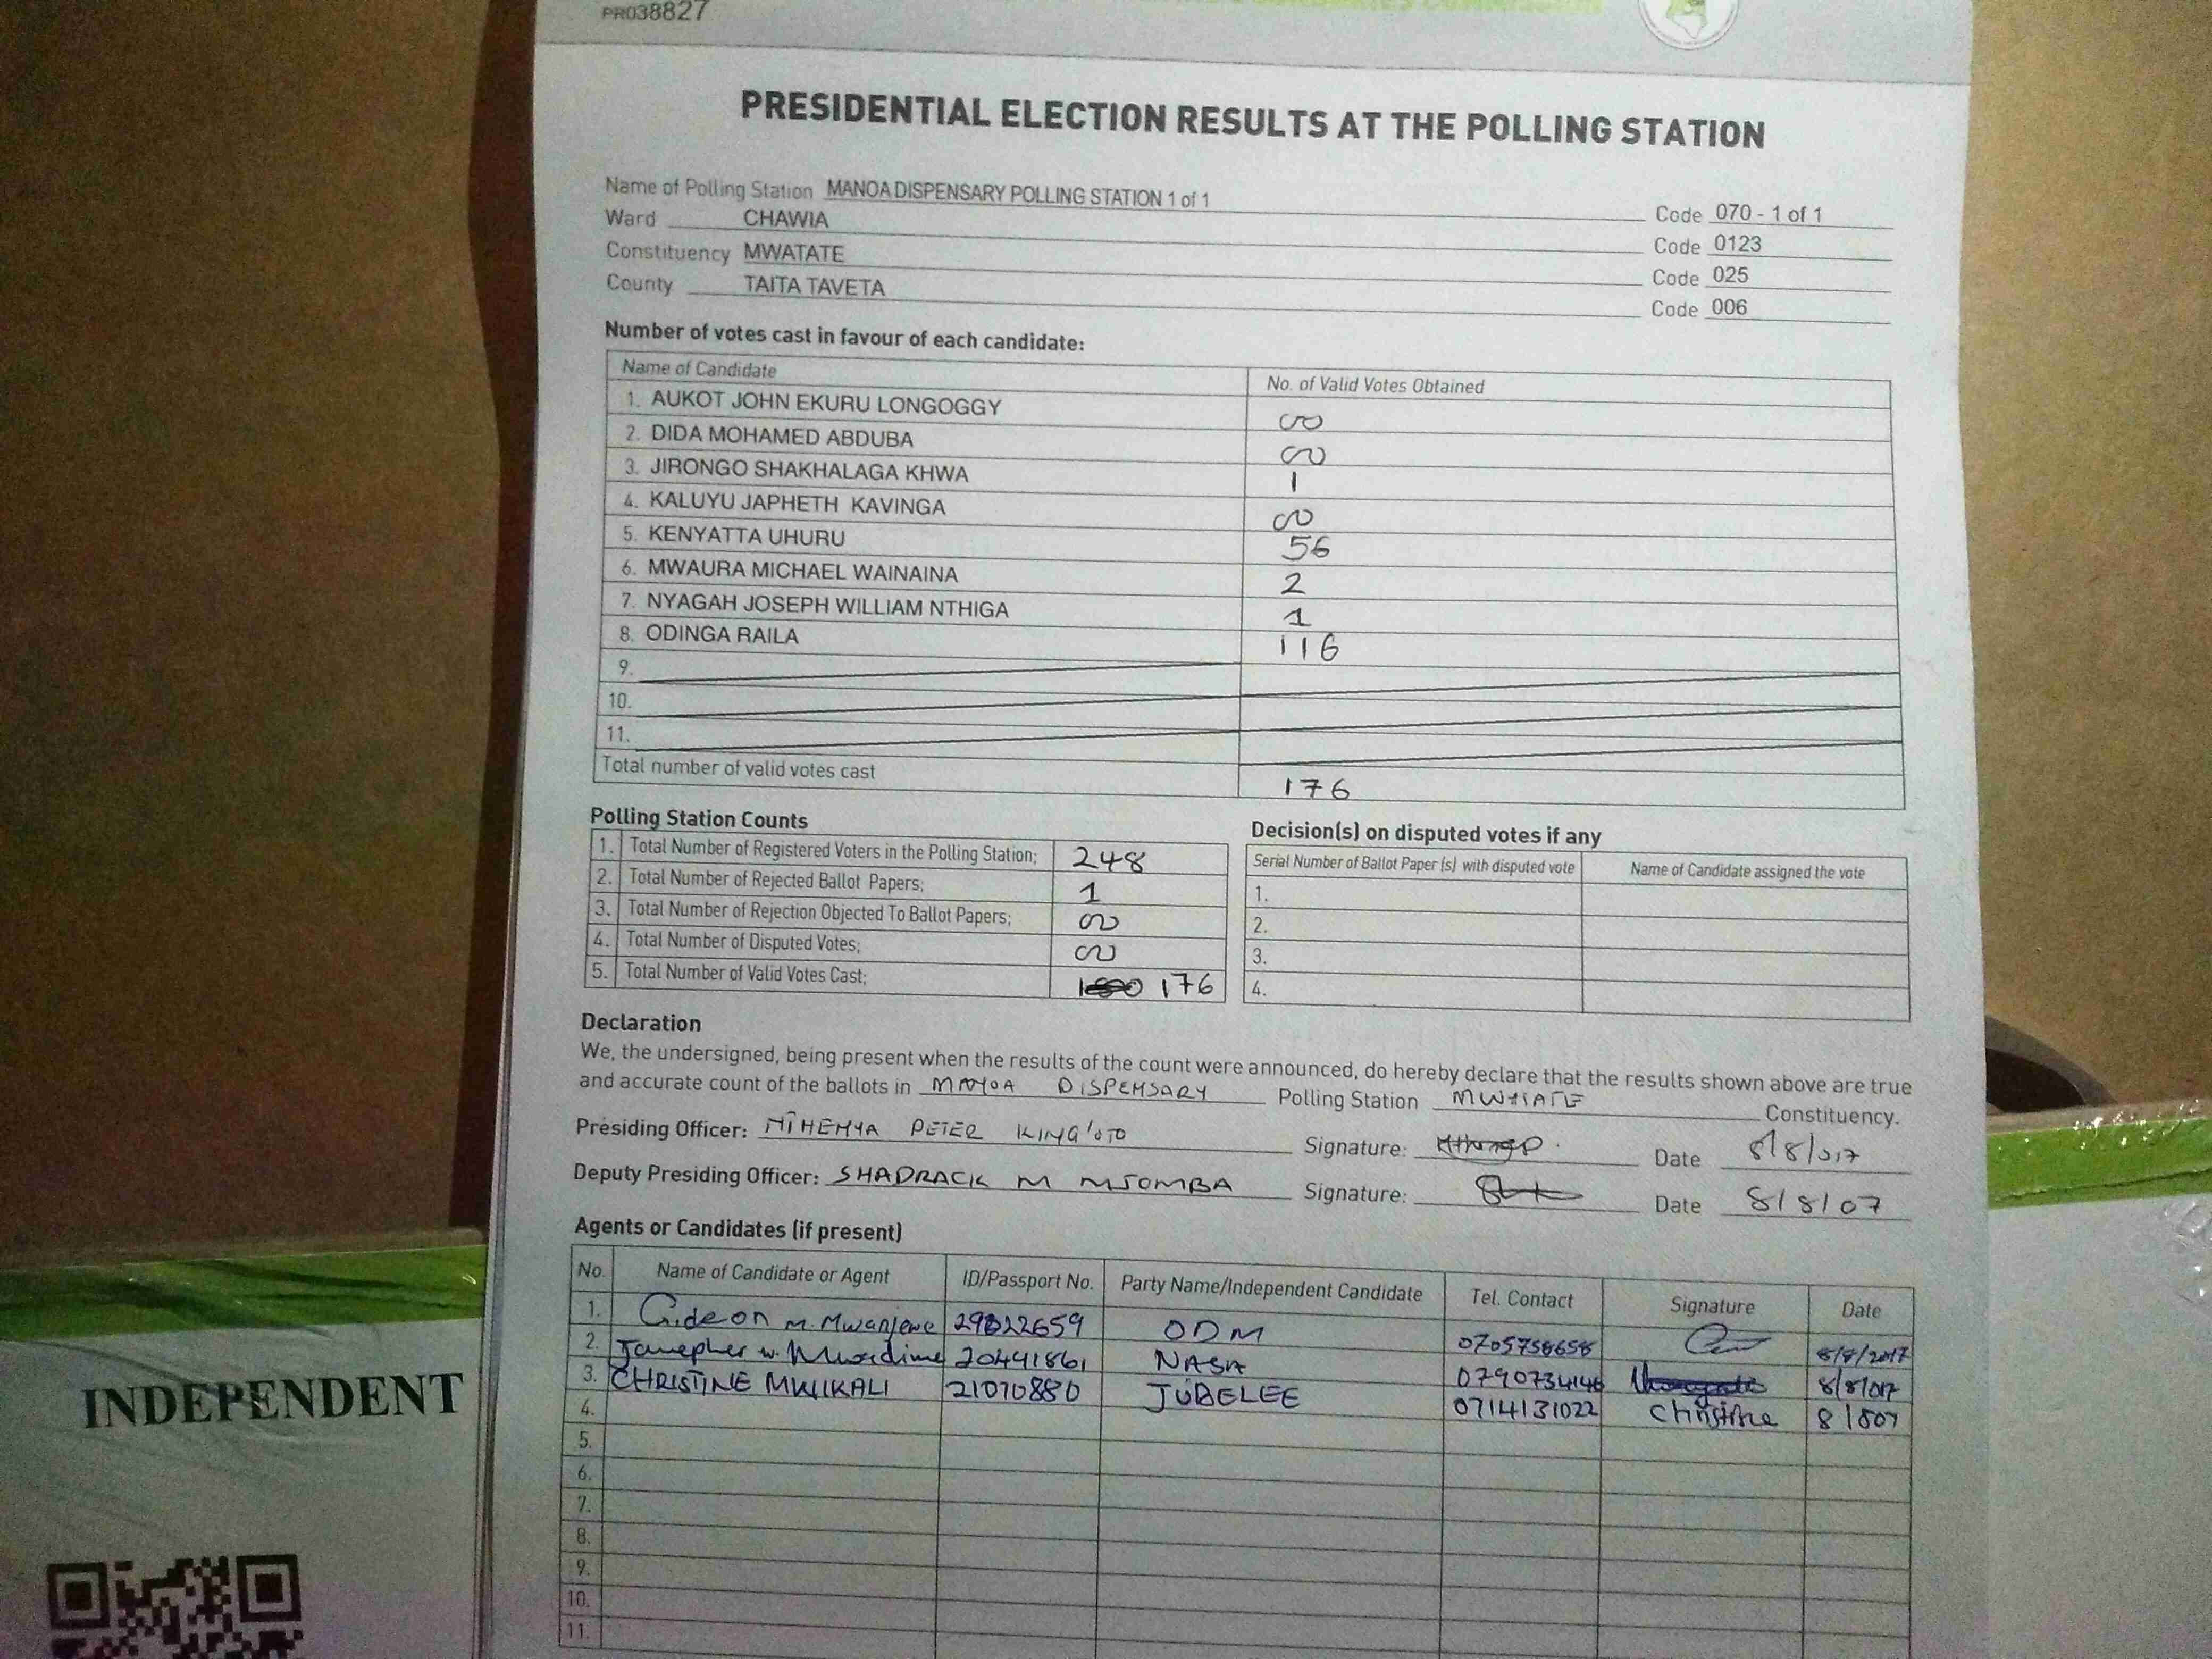 PR038827
PRESIDENTIAL ELECTION RESULTS AT THE POLLING STATION
Name of Polling Station MANOA DISPENSARY POLLING STATION 1 of 1 Code 070 - 1 of 1
Ward CHAWIA Code 0123
Constituency MWATATE Code 025
County TAITA TAVETA Code 006
Number of votes cast in favour of each candidate:
Name of Candidate No. of Valid Votes Obtained
1. AUKOT JOHN EKURU LONGOGGY 00
2. DIDA MOHAMED ABDUBA 00
3. JIRONGO SHAKHALAGA KHWA 1
4. KALUYU JAPHETH KAVINGA 00
5. KENYATTA UHURU 56
6. MWAURA MICHAEL WAINAINA 2
7. NYAGAH JOSEPH WILLIAM NTHIGA 1
8. ODINGA RAILA 116
9.
10.
11.
Total number of valid votes cast 176
Polling Station Counts
1. Total Number of Registered Voters in the Polling Station; 248
2. Total Number of Rejected Ballot Papers; 1
3. Total Number of Rejection Objected To Ballot Papers; 00
4. Total Number of Disputed Votes; 00
5. Total Number of Valid Votes Cast; 176
Decision(s) on disputed votes if any
Serial Number of Ballot Paper (s) with disputed vote Name of Candidate assigned the vote
1.
2.
3.
4.
Declaration
We, the undersigned, being present when the results of the count were announced, do hereby declare that the results shown above are true
and accurate count of the ballots in MANOA DISPENSARY Polling Station MWATATE Constituency.
Presiding Officer: PETER KING'OTO Signature: Date 8/8/017
Deputy Presiding Officer: SHADRACK M MJOMBA Signature: Date 8/8/07
Agents or Candidates (if present)
No. Name of Candidate or Agent ID/Passport No. Party Name/Independent Candidate Tel. Contact Signature Date
1. Gideon M. 29822659 ODM 0705758658 8/8/2017
2. w. 20441861 NASA 0790734146 8/8/017
3. CHRISTINE MKIIKALI 21070880 JUBELEE 0714131022 Christine 8/807
4.
5.
6.
7.
8.
9.
10.
11.
INDEPENDENT